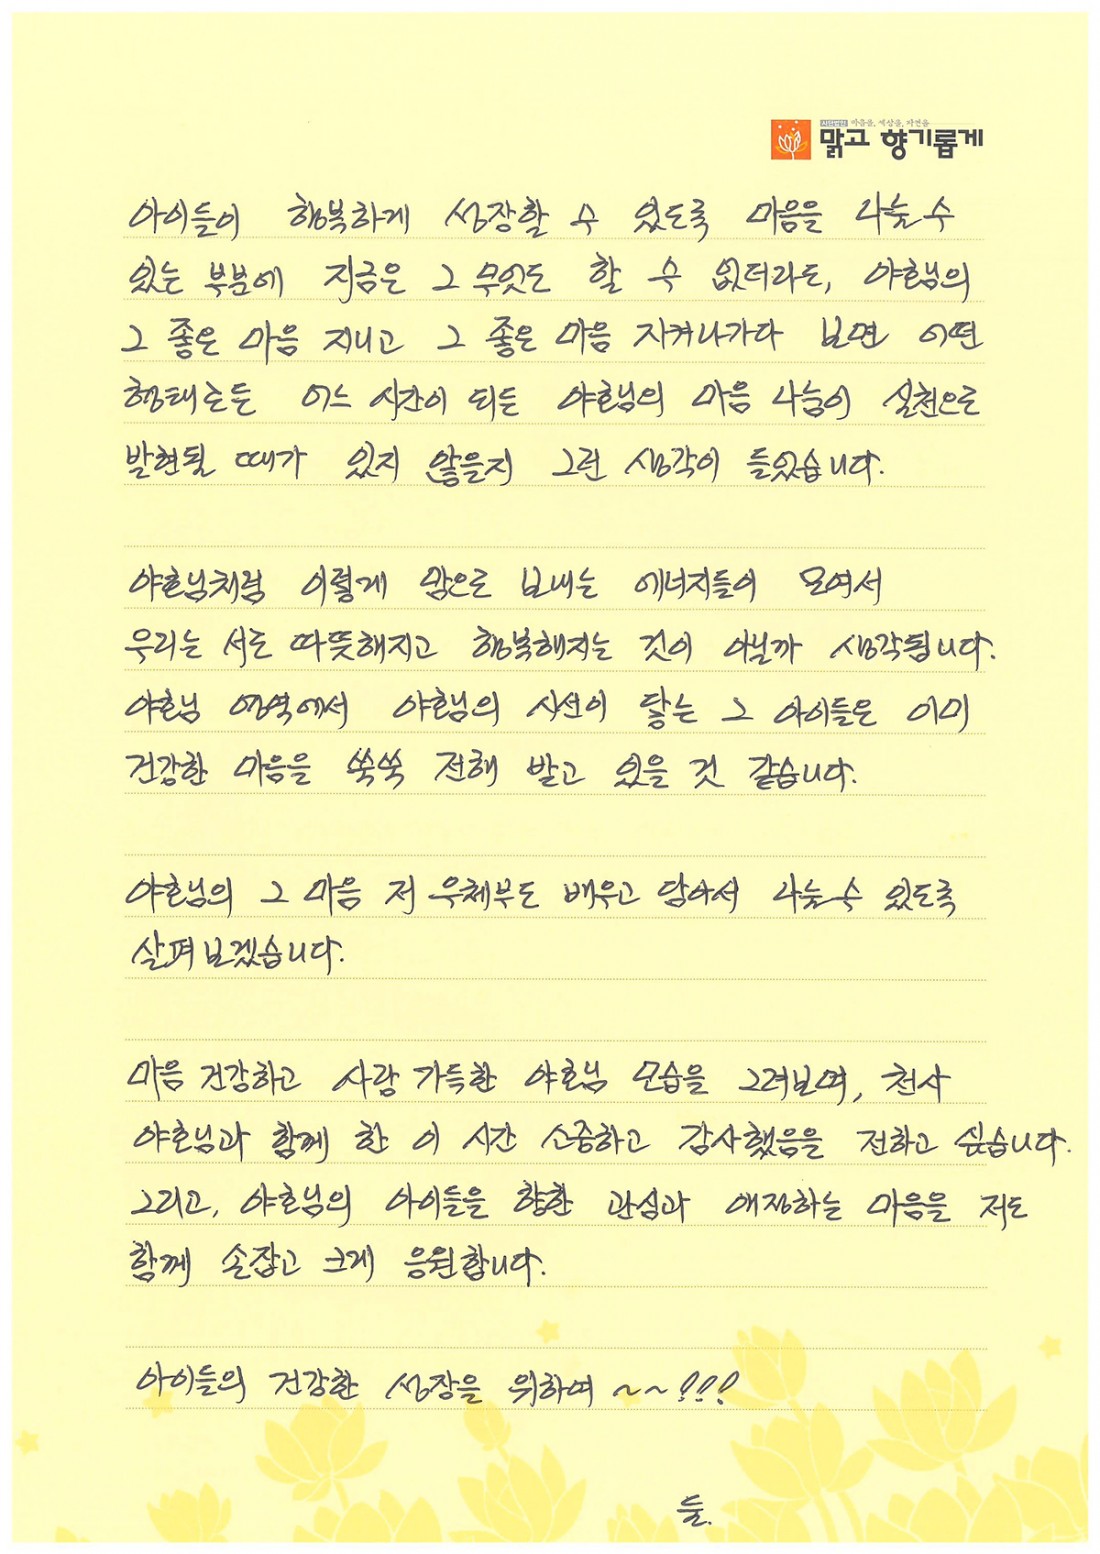 사단법인 마음을, 세상을, 자연을
맑고 향기롭게
아이들이 행복하게 성장할 수 있도록 마음을 나눌 수
있는 부분에 지금은 그 무엇도 할 수 없더라도, 야호님의
그 좋은 마음 지니고 그 좋은 마음 지켜나가다 보면 어떤
형태로든 어느 시간이 되든 야호님의 마음 나눔이 실천으로
발현될 때가 있지 않을지 그런 생각이 들었습니다.
야호님처럼 이렇게 맘으로 보내는 에너지들이 모여서
우리는 서로 따뜻해지고 행복해지는 것이 아닐까 생각됩니다.
야호님 영역에서 야호님의 시선이 닿는 그 아이들은 이미
건강한 마음을 쑥쑥 전해 받고 있을 것 같습니다.
야호님의 그 마음 저 우체부도 배우고 담아서 나눌 수 있도록
살펴보겠습니다.
마음 건강하고 사랑 가득한 야호님 모습을 그려보며, 천사
야호님과 함께 한 이 시간 소중하고 감사했음을 전하고 싶습니다.
그리고, 야호님의 아이들을 향한 관심과 애정하는 마음을 저도
함께 손잡고 크게 응원합니다.
아이들의 건강한 성장을 위하여 ~~!!!
둘.